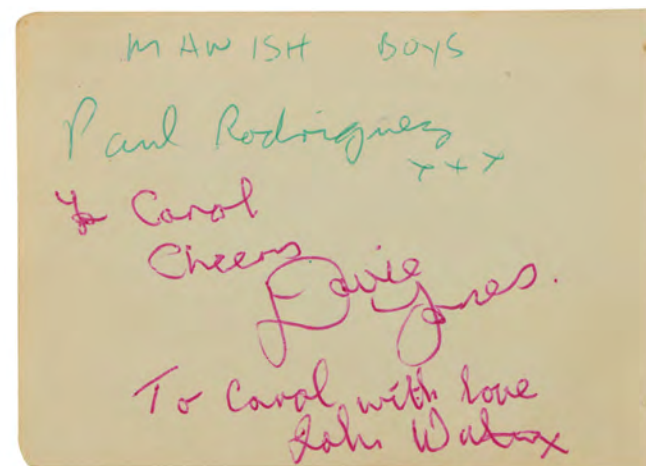 MANISH BOYS
Paul Rodriguez
x x x
To Carol
Cheers
Davie Jones.
To Carol with love
John Watson x